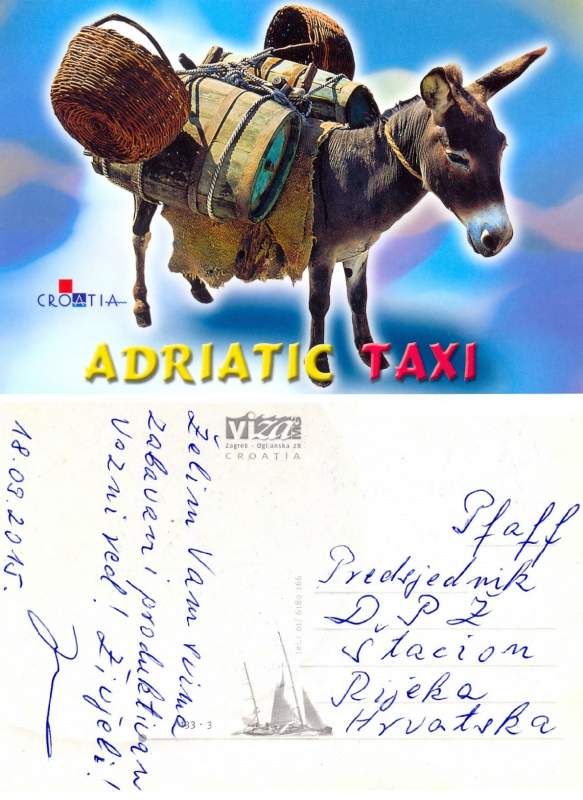 CROATIA
ADRIATIC TAXI
VIZA
Zagreb - Oglianska 28
CROATIA
Želim Vam svima
zabavan i produktivan
Vozni red! Živjeli!
18.09.2015.
Pfaff
Predsjednik
D. P. Ž
Stacion
Rijeka
Hrvatska
33 - 3